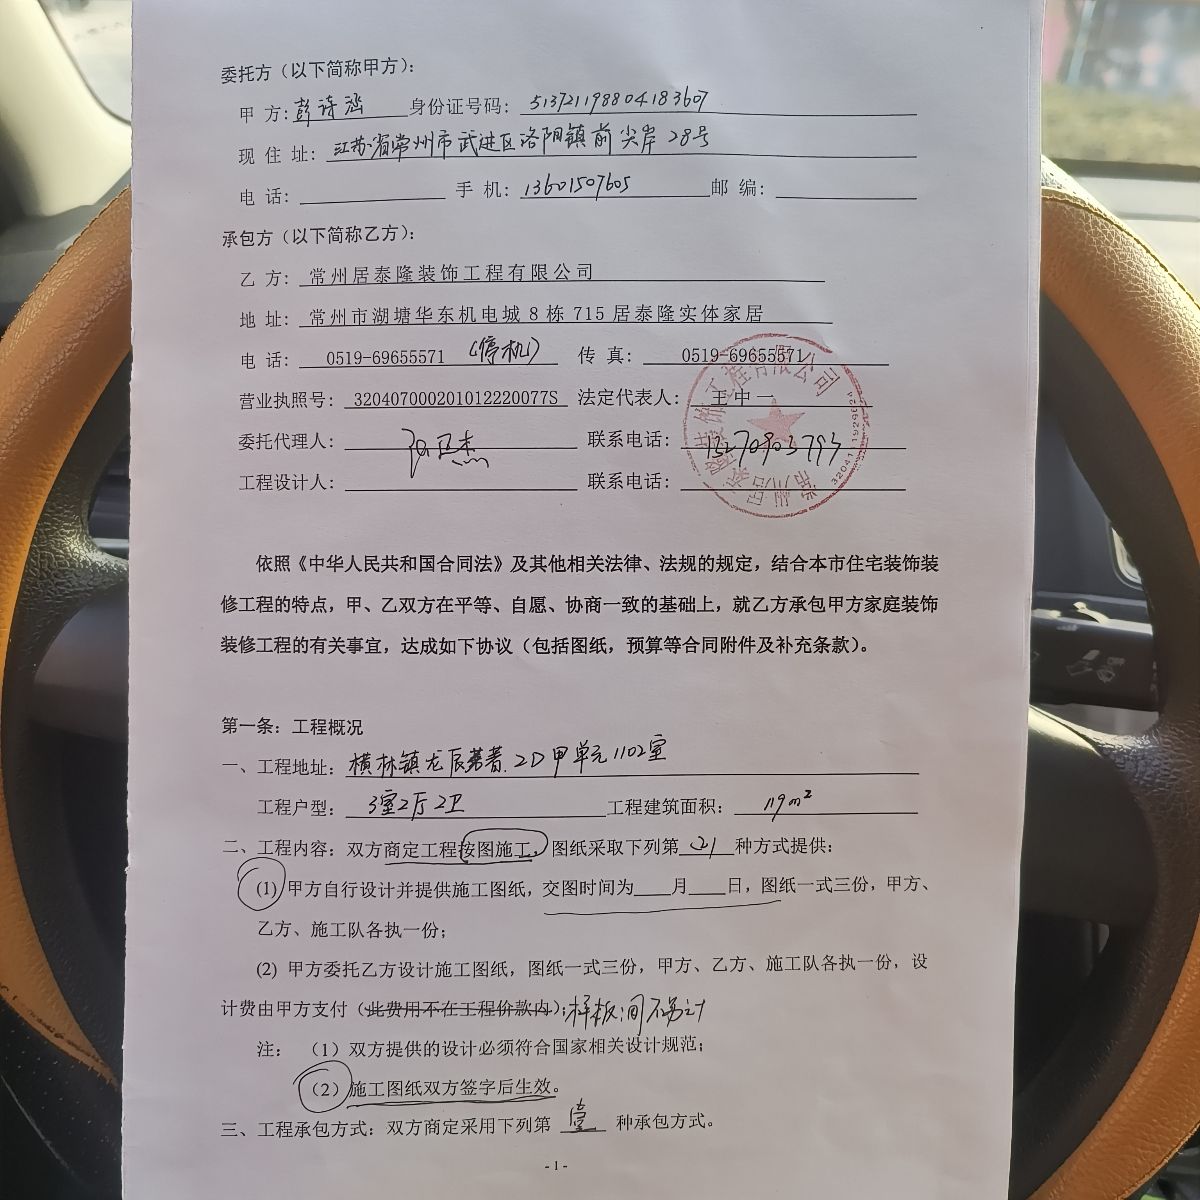 委托方（以下简称甲方）：
甲 方：彭诗涵 身份证号码：513721198804183607
现 住 址：江苏省常州市武进区洛阳镇前尖岸28号
电 话： 手 机：13601507605 邮 编：
承包方（以下简称乙方）：
乙 方：常州居泰隆装饰工程有限公司
地 址：常州市湖塘华东机电城 8 栋 715 居泰隆实体家居
电 话：0519-69655571（停机） 传 真：0519-69655571
营业执照号：320407000201012220077S 法定代表人：王中一
委托代理人： 联系电话：13270903793
工程设计人： 联系电话：
依照《中华人民共和国合同法》及其他相关法律、法规的规定，结合本市住宅装饰装
修工程的特点，甲、乙双方在平等、自愿、协商一致的基础上，就乙方承包甲方家庭装饰
装修工程的有关事宜，达成如下协议（包括图纸，预算等合同附件及补充条款）。
第一条：工程概况
一、工程地址：横林镇龙辰 2D甲单元1102室
工程户型：3室2厅2卫 工程建筑面积：119m²
二、工程内容：双方商定工程按图施工，图纸采取下列第 种方式提供：
(1) 甲方自行设计并提供施工图纸，交图时间为____月____日，图纸一式三份，甲方、
乙方、施工队各执一份；
(2) 甲方委托乙方设计施工图纸，图纸一式三份，甲方、乙方、施工队各执一份，设
计费由甲方支付（此费用不在工程价款内）；样板间不另计
注：（1）双方提供的设计必须符合国家相关设计规范；
（2）施工图纸双方签字后生效。
三、工程承包方式：双方商定采用下列第 壹 种承包方式。
- 1 -